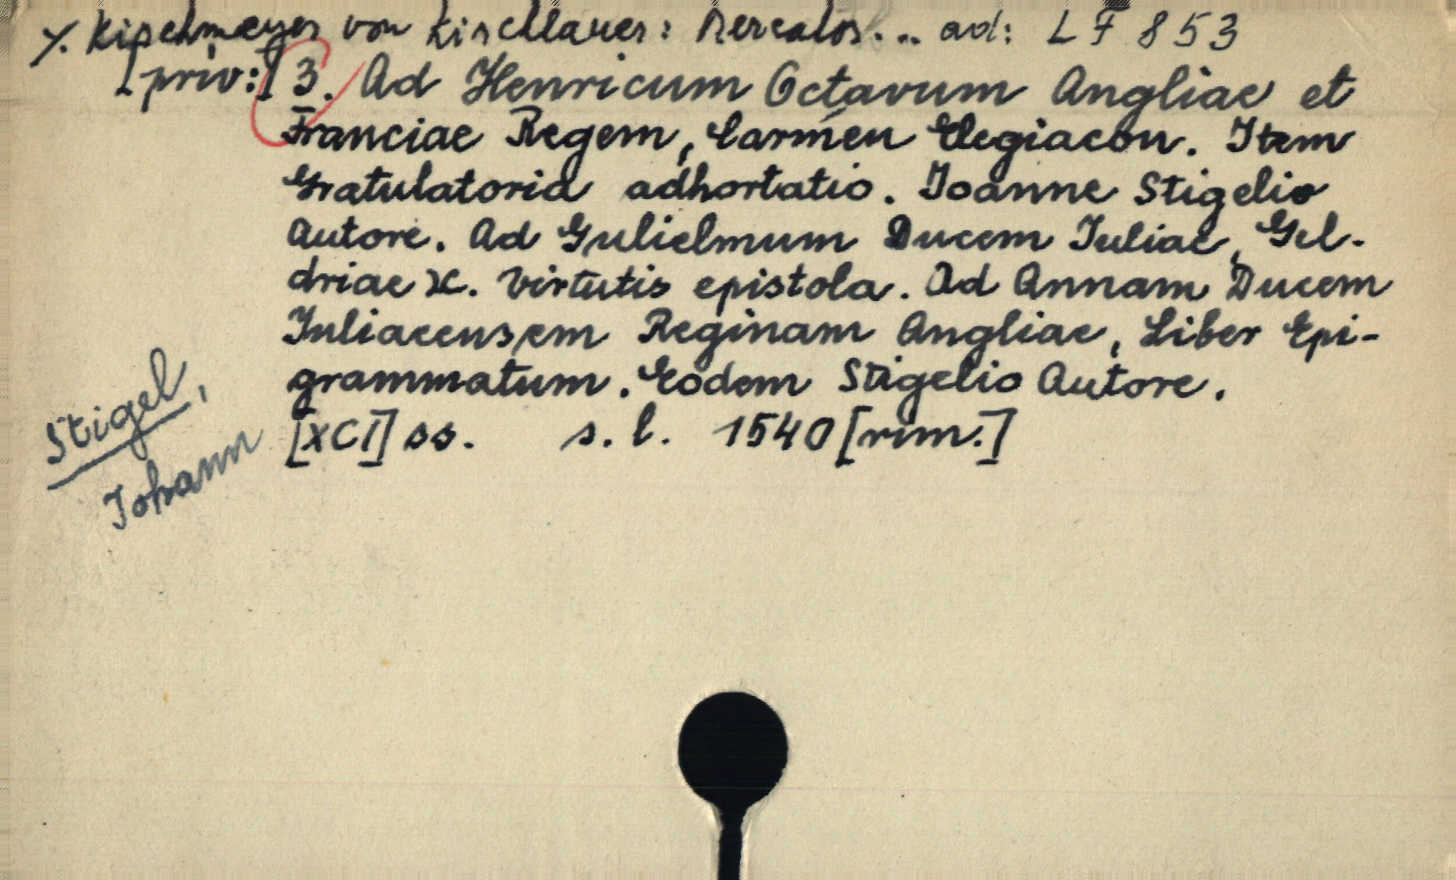 Y. Kirchmayer von Kirchlauer: Hercules... ad: LF 853
[priv:] 3. Ad Henricum Octavum Angliae et
Franciae Regem, Carmen Elegiacon. Item
Gratulatoria adhortatio. Ioanne Stigelio
Autore. Ad Gulielmum Ducem Iuliae, Gel-
driae &c. Virtutis epistola. Ad Annam Ducem
Iuliacensem Reginam Angliae, Liber Epi-
grammatum. Eodem Stigelio Autore.
[XCI] ss. s. l. 1540 [rim.]
Stigel,
Johann